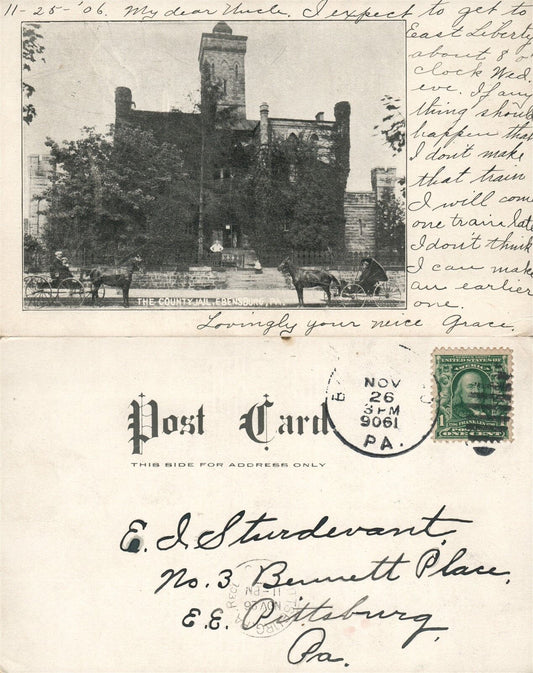 11-25-'06. My dear Uncle. I expect to get to
East Liberty
about 8 o'
clock Wed.
eve. If any
thing should
happen that
I don't make
that train
I will come
one train late
I don't think
I can make
an earlier
one.
THE COUNTY JAIL, EBENSBURG, PA.
Lovingly your neice Grace.
Post Card
THIS SIDE FOR ADDRESS ONLY
NOV
26
3 PM
9061
PA.
UNITED STATES OF
AMERICA
1
ONE CENT
E. I. Sturdevant,
No. 3 Bennett Place,
E.E. Pittsburg,
Pa.
REC'D.
11-PM
NOV